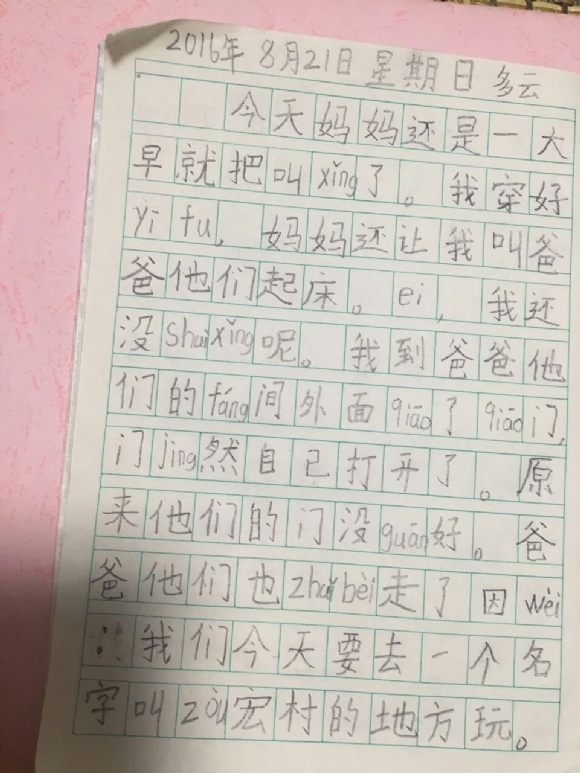 2016年 8月21日 星期日 多云
今天妈妈还是一大
早就把叫xǐng了。我穿好
yī fu,妈妈还让我叫爸
爸他们起床。ei,我还
没shuìxǐng呢。我到爸爸他
们的fáng间外面qiāo了qiāo门,
门jìng然自己打开了。原
来他们的门没guān好。爸
爸他们也zhǔibèi走了因wèi
:我们今天要去一个名
字叫zòu宏村的地方玩。